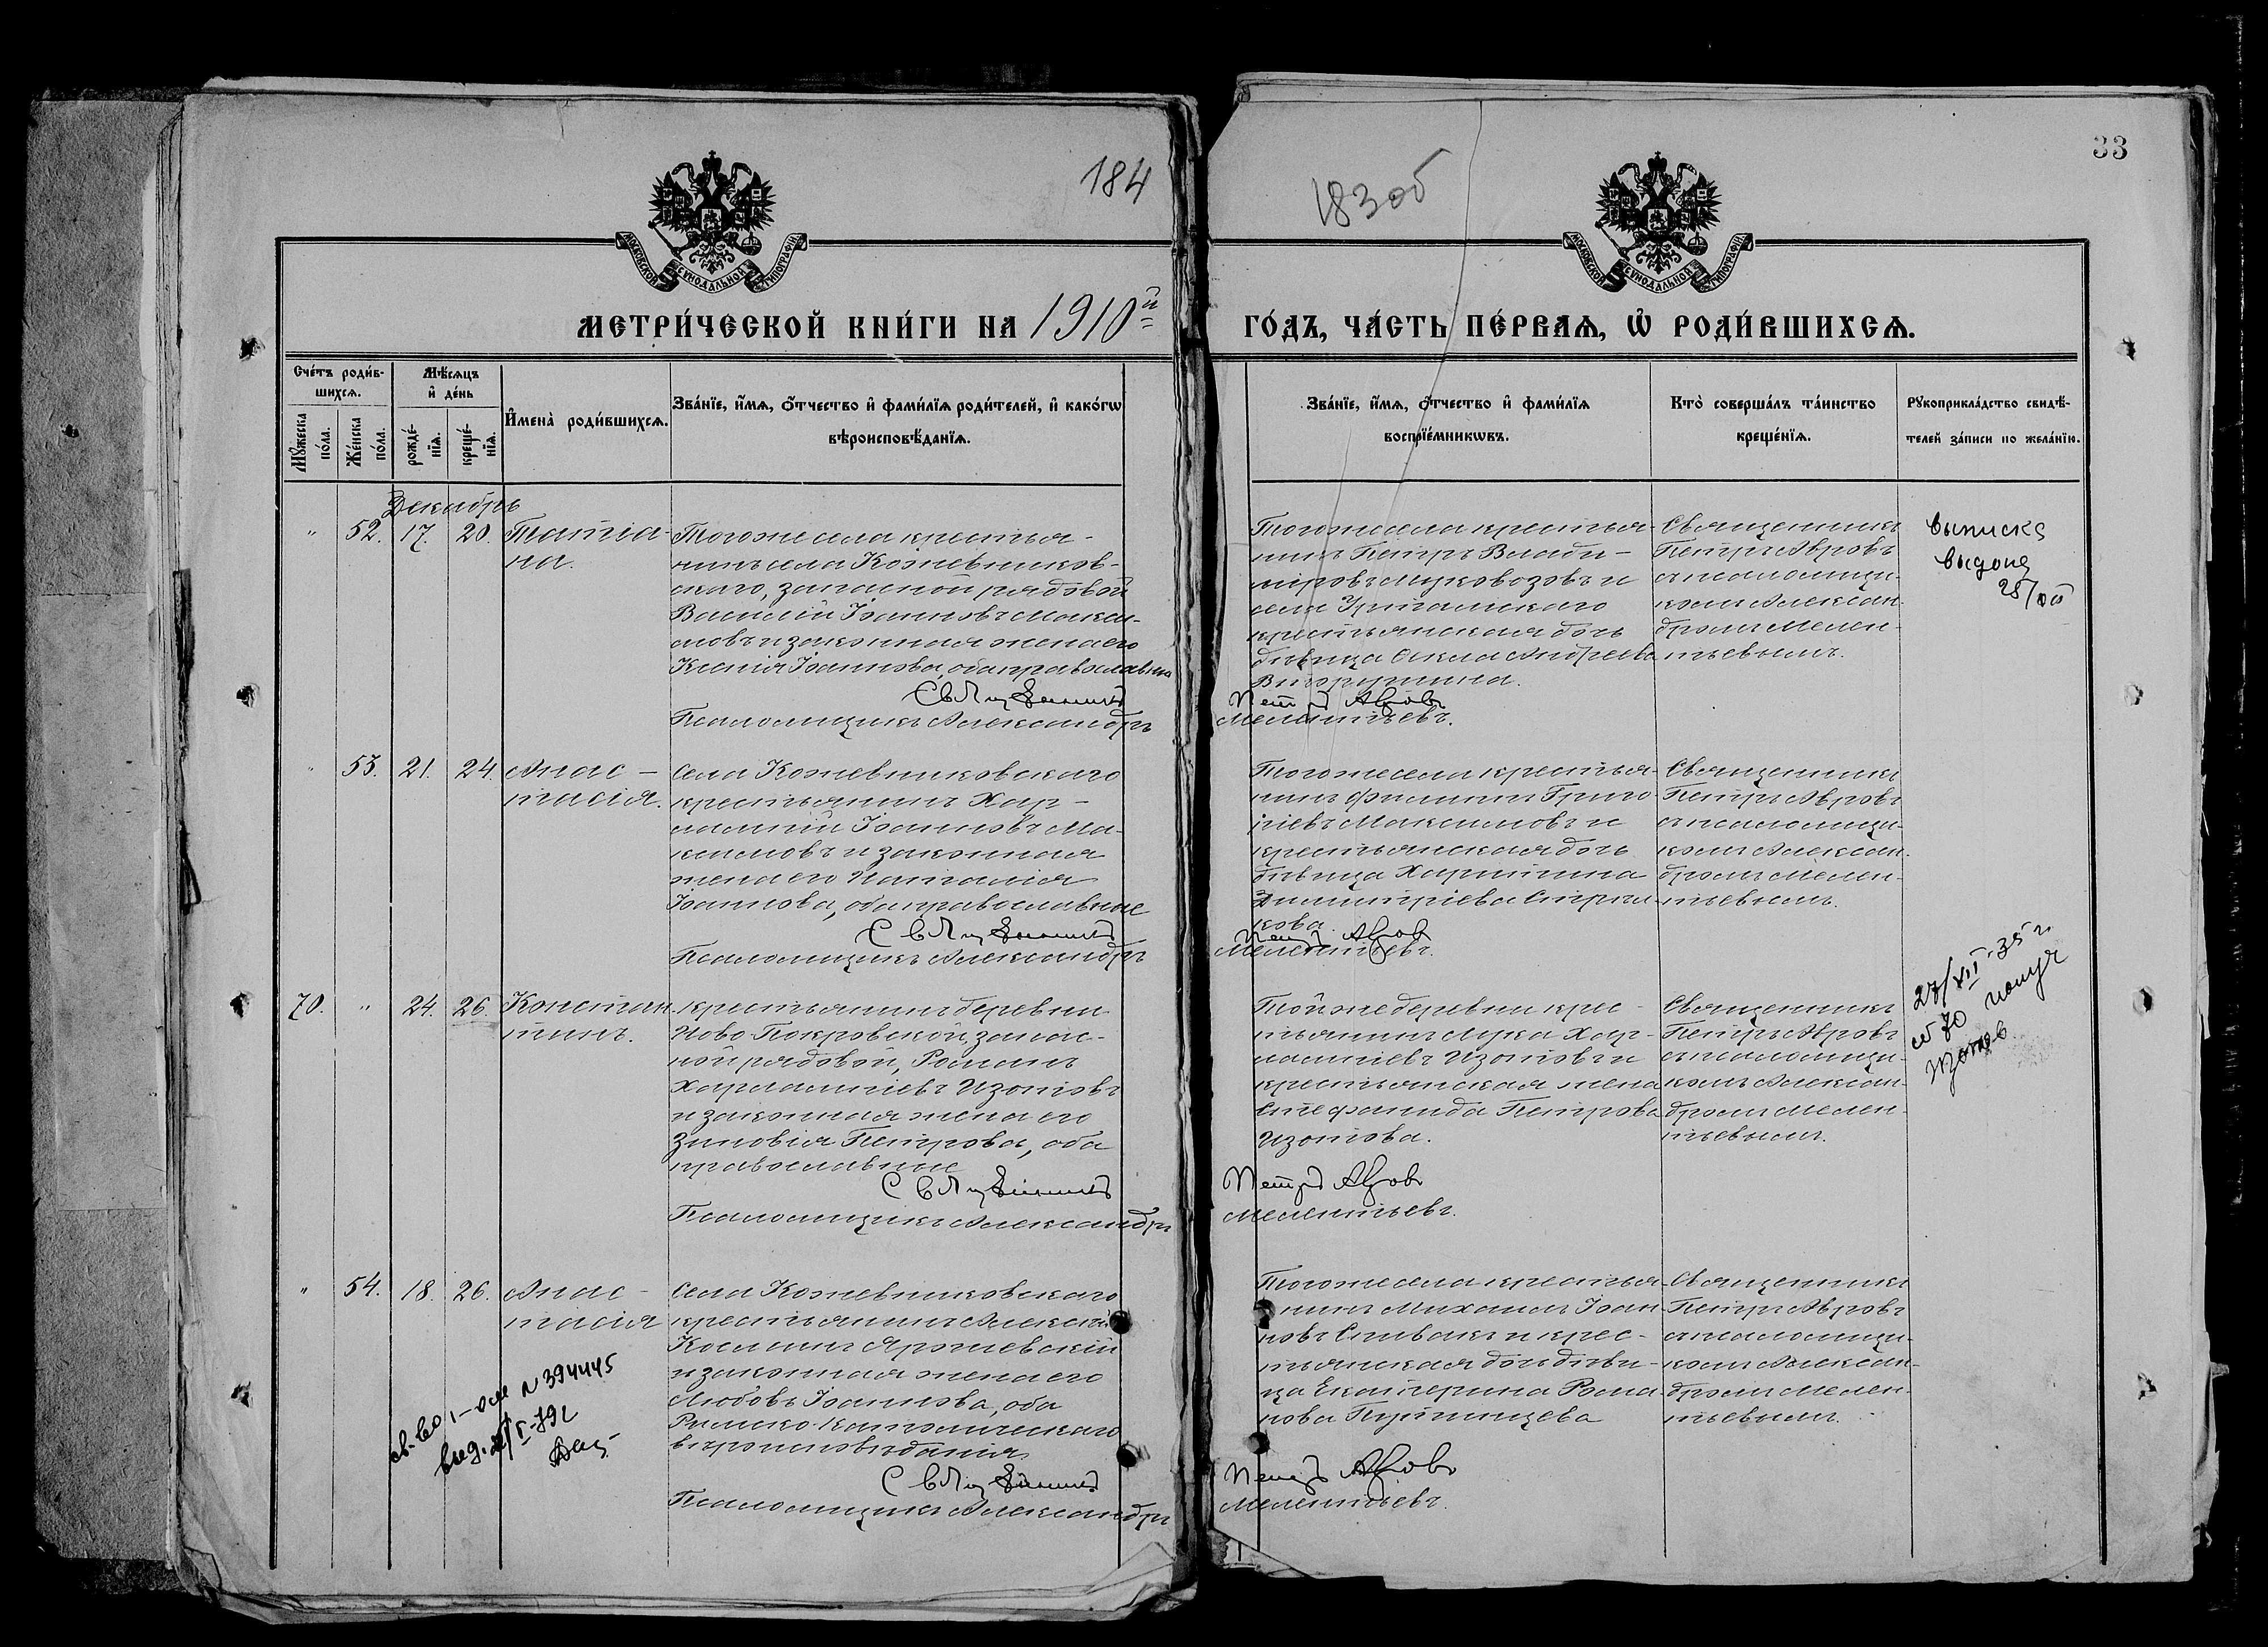 184
183 об
33
МОСКОВСКОЙ СѴНОДАЛЬНОЙ ТИПОГРАФІИ
МОСКОВСКОЙ СѴНОДАЛЬНОЙ ТИПОГРАФІИ
МЕТРИ́ЧЕСКОЙ КНИ́ГИ НА 1910й
ГО́ДЪ, ЧА́СТЬ ПЕ́РВАѦ, Ѡ҆ РОДИ́ВШИХСѦ.
Сче́тъ роди́в-
шихсѧ.
Мꙋ́жеска по́ла.
Же́нска по́ла.
Мѣ́сѧцъ
и҆ де́нь
рожде́-
нїѧ.
креще́-
нїѧ.
И҆мена̀ роди́вшихсѧ.
Зва́нїе, и҆́мѧ, ѻ҆́тчество и҆ фами́лїѧ роди́телей, и҆ како́гѡ
вѣроисповѣ́данїѧ.
Зва́нїе, и҆́мѧ, ѻ҆́тчество и҆ фами́лїѧ
воспрїе́мникѡвъ.
Кто̀ соверша́лъ та́инство
креще́нїѧ.
Рꙋкоприкла́дство свидѣ́-
телей за́писи по жела́нїю.
Декабрь
" 52. 17. 20. Татіа-
на.
Тогоже села крестья-
нинъ села Кожевников-
скаго, запасной рядовой
Василій Іоанновъ Макси-
мовъ и законная жена его
Ксенія Іоаннова, оба православные
Священникъ
Псаломщикъ Александръ
Тогоже села крестья-
нинъ Петръ Влади-
міровъ Муковозовъ и
села Уртамскаго
крестьянская дочь
дѣвица Ѳекла Андреева
Вторушина.
Петръ Авровъ
Мелентьевъ.
Священникъ
Петръ Авровъ
съ псаломщи-
комъ Алексан-
дромъ Мелен-
тьевымъ.
выписка
выдана
" 53. 21. 24. Анас-
тасія.
Села Кожевниковскаго
крестьянинъ Хар-
лампій Іоанновъ Ма-
ксимовъ и законная
жена его Наталія
Іоаннова, оба православные
Священникъ
Псаломщикъ Александръ
Тогоже села крестья-
нинъ Филиппъ Григо-
ріевъ Максимовъ и
крестьянская дочь
дѣвица Харитина
Димитріева Стрѣл-
кова.
Петръ Авровъ
Мелентьевъ.
Священникъ
Петръ Авровъ
съ псаломщи-
комъ Алексан-
дромъ Мелен-
тьевымъ.
70. " 24. 26. Констан-
тинъ.
крестьянинъ деревни
Ново-Покровской, запас-
ной рядовой, Романъ
Харлампіевъ Изотовъ
и законная жена его
Зиновія Петрова, оба
православные
Священникъ
Псаломщикъ Александръ
Той же деревни крес-
тьянинъ Лука Хар-
лампіевъ Изотовъ и
крестьянская жена
Стефанида Петрова
Изотова.
Петръ Авровъ
Мелентьевъ.
Священникъ
Петръ Авровъ
съ псаломщи-
комъ Алексан-
дромъ Мелен-
тьевымъ.
27/XII-35 г.
70 получ
Изотов
" 54. 18. 26. Анас-
тасія
Села Кожевниковскаго
крестьянинъ Алексѣй
Косминъ Ярошевскій
и законная жена его
Любовь Іоаннова, оба
Римско-Католическаго
вѣроисповѣданія
Священникъ
Псаломщикъ Александръ
Тогоже села крестья-
нинъ Михаилъ Іоан-
новъ Спивакъ и крес-
тьянская дочь дѣви-
ца Екатерина Рома-
нова Путинцева
Петръ Авровъ
Мелентьевъ.
Священникъ
Петръ Авровъ
съ псаломщи-
комъ Алексан-
дромъ Мелен-
тьевымъ.
св-во N 394445